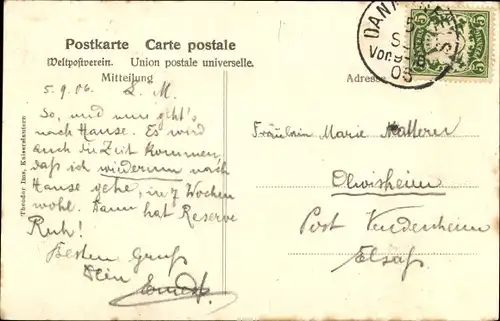 Postkarte Carte postale
Weltpostverein. Union postale universelle.
Mitteilung
Adresse
5
5.9.06. L. M.
So, und nun geht's
nach Hause. Es wird
auch die Zeit kommen,
daß ich wiederum nach
Hause gehe, in 7 Wochen
wohl. Dann hat Reserve
Ruh!
Besten Gruß
Dein Ernest.
Fräulein Marie Matterer
Olwisheim
Post Vendenheim
Elsaß
Theodor Imo, Kaiserslautern